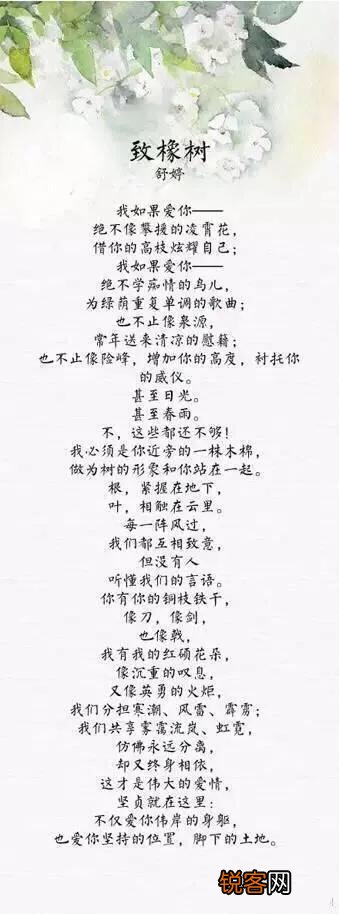 致橡树
舒婷
我如果爱你——
绝不像攀援的凌霄花，
借你的高枝炫耀自己；
我如果爱你——
绝不学痴情的鸟儿，
为绿荫重复单调的歌曲；
也不止像泉源，
常年送来清凉的慰籍；
也不止像险峰，增加你的高度，衬托你
的威仪。
甚至日光。
甚至春雨。
不，这些都还不够！
我必须是你近旁的一株木棉，
做为树的形象和你站在一起。
根，紧握在地下，
叶，相触在云里。
每一阵风过，
我们都互相致意，
但没有人
听懂我们的言语。
你有你的铜枝铁干，
像刀，像剑，
也像戟，
我有我的红硕花朵，
像沉重的叹息，
又像英勇的火炬，
我们分担寒潮、风雷、霹雳；
我们共享雾霭流岚、虹霓，
仿佛永远分离，
却又终身相依，
这才是伟大的爱情，
坚贞就在这里：
不仅爱你伟岸的身躯，
也爱你坚持的位置，脚下的土地。
锐客网